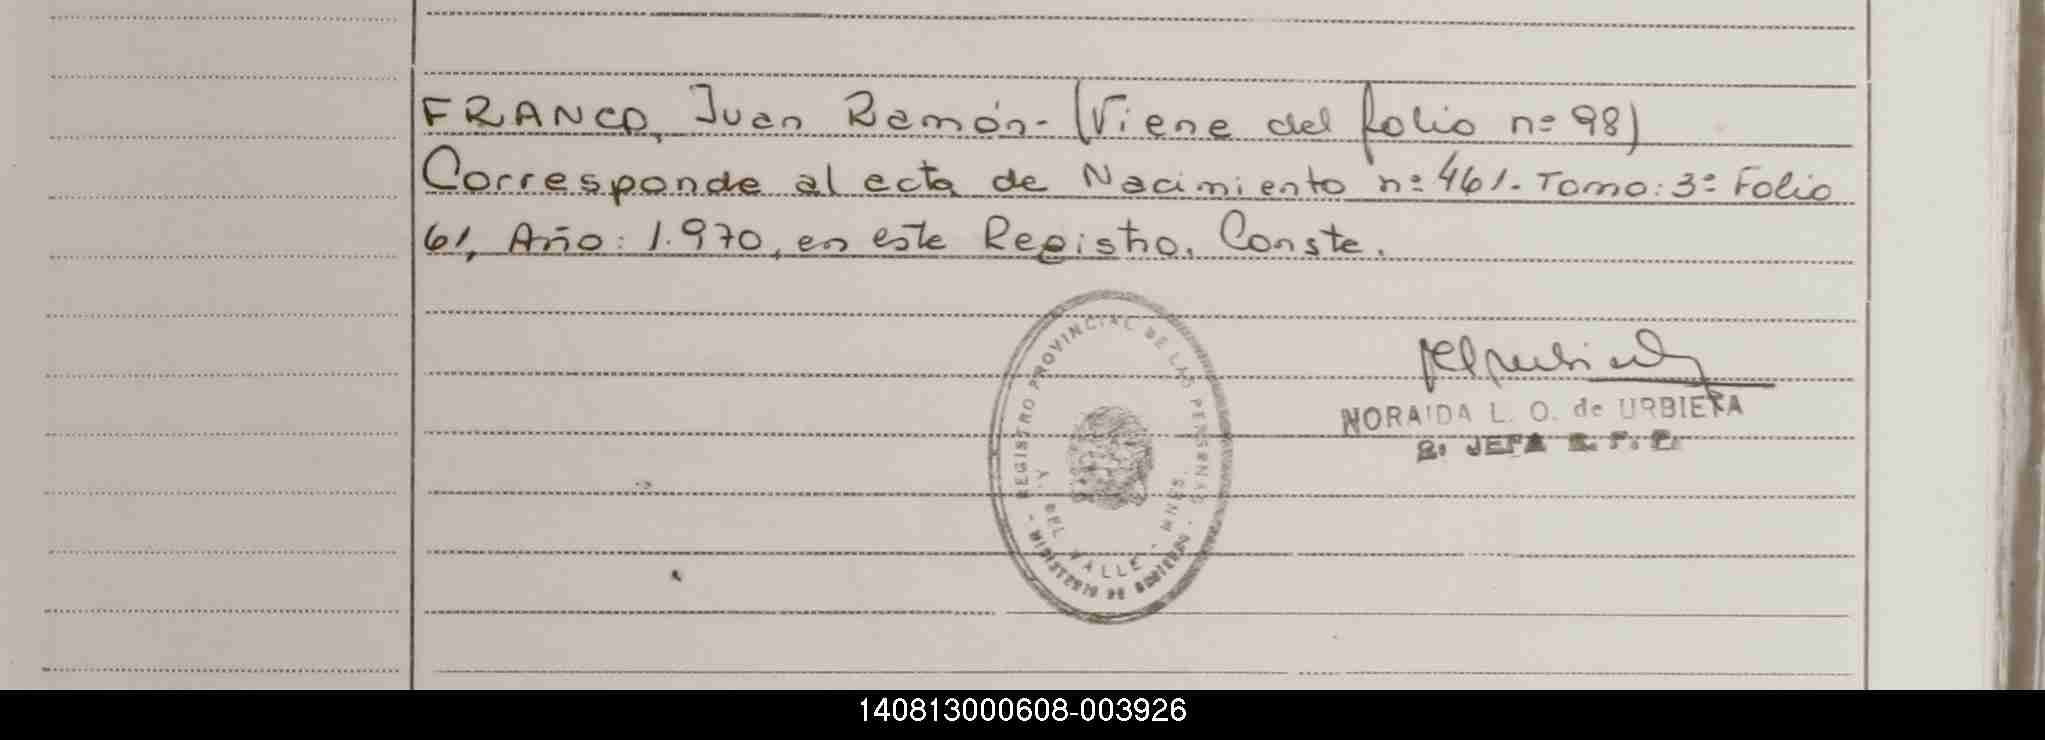 FRANCO, Juan Ramón- (Viene del folio nº 98)
Corresponde al acta de Nacimiento nº 461. Tomo: 3º Folio
61, Año: 1.970, en este Registro. Conste.
REGISTRO PROVINCIAL DE LAS PERSONAS
DEL VALLE - MNES.
- MINISTERIO DE GOBIERNO -
NORAIDA L. O. de URBIETA
2. JEFA R. P. P.
140813000608-003926